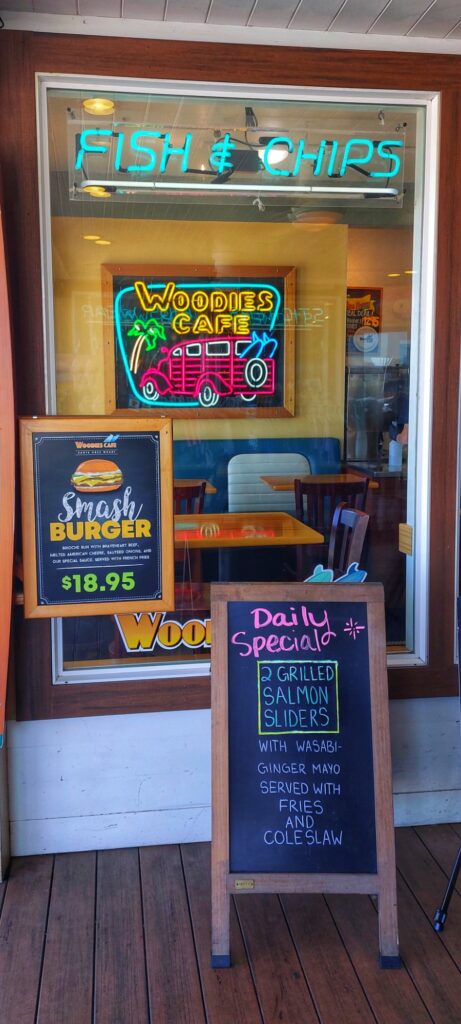 FISH & CHIPS
WOODIES
CAFE
WOODIES CAFE
Smash
BURGER
BRIOCHE BUN WITH BRAVEHEART BEEF,
MELTED AMERICAN CHEESE, SAUTEED ONIONS, AND
OUR SPECIAL SAUCE. SERVED WITH FRENCH FRIES
$18.95
WOOD
Daily
Special
2 GRILLED
SALMON
SLIDERS
WITH WASABI-
GINGER MAYO
SERVED WITH
FRIES
AND
COLESLAW